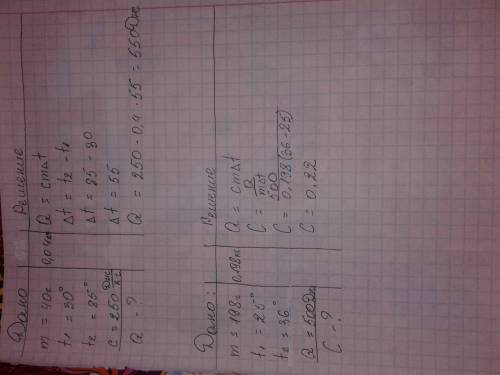 Дано
m = 40г
t₁ = 30°
t₂ = 85°
c = 250 Дж/кг
Q - ?
0,04кг
Решение
Q = cmΔt
Δt = t₂ - t₁
Δt = 85 - 30
Δt = 55
Q = 250 · 0,4 · 55 = 550Дж
Дано:
m = 198г
t₁ = 25°
t₂ = 36°
Q = 500Дж
C - ?
0,198кг
Решение
Q = cmΔt
C = Q/mΔt
C = 500/0,198(36-25)
C = 0,22